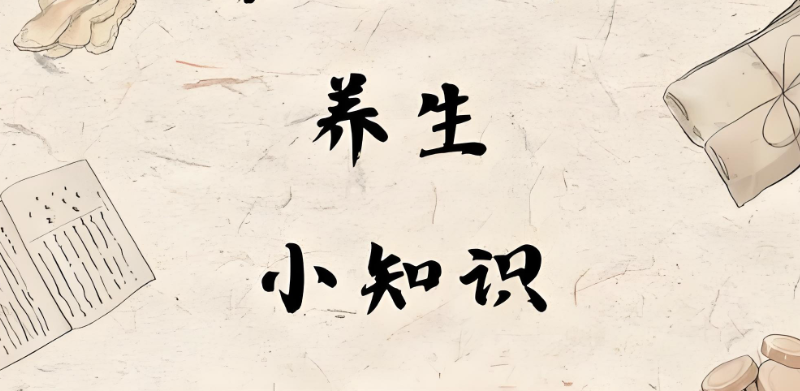 养生
小知识